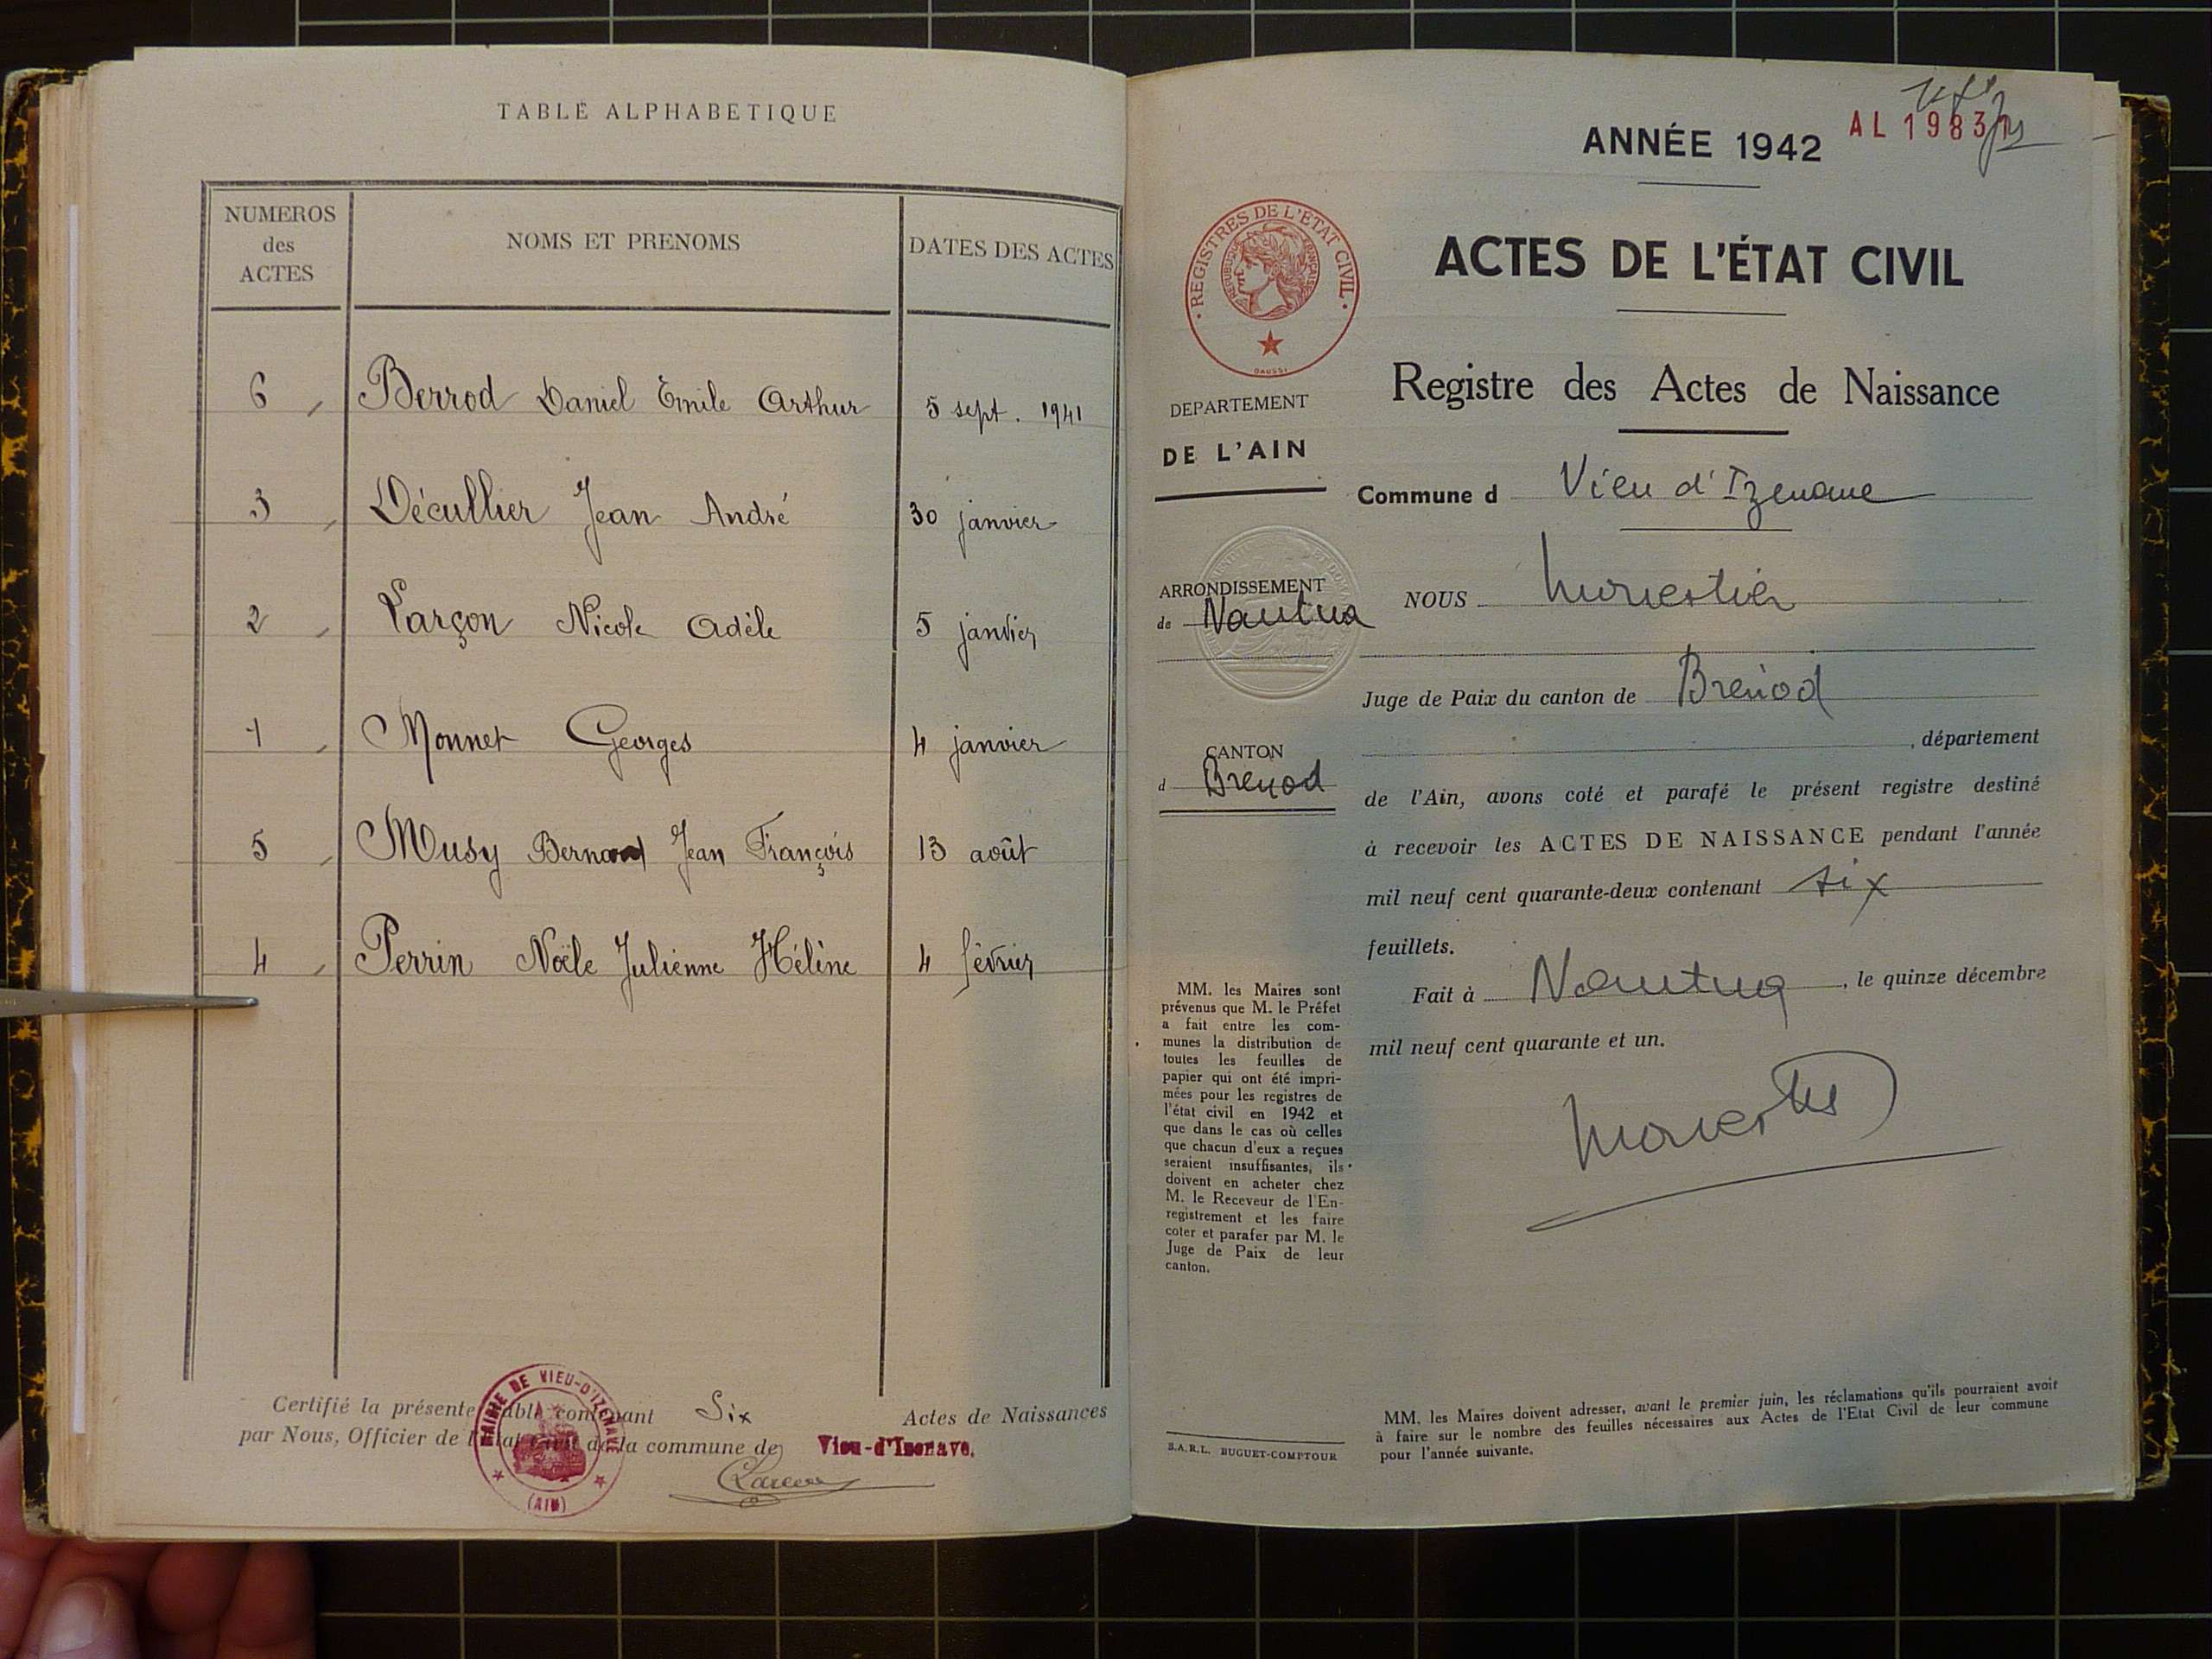 TABLE ALPHABETIQUE
NUMEROS
des
ACTES
NOMS ET PRENOMS
DATES DES ACTES
6 Berrod Daniel Emile Arthur 5 sept. 1941
3 Décullier Jean André 30 janvier
2 Larçon Nicole Adèle 5 janvier
1 Monnet Georges 4 janvier
5 Musy Bernard Jean François 13 août
4 Perrin Noële Julienne Hélène 4 février
Certifié la présente table contenant Six Actes de Naissances
par Nous, Officier de l'Etat Civil de la commune de Vieu-d'Izenave.
MAIRIE DE VIEU-D'IZENAVE
(AIN)
ANNÉE 1942
AL 1983
ACTES DE L'ÉTAT CIVIL
Registre des Actes de Naissance
REGISTRES DE L'ÉTAT CIVIL
RÉPUBLIQUE FRANÇAISE
DAUSSY
DEPARTEMENT
DE L'AIN
Commune d Vieu d'Izenave
ARRONDISSEMENT
de Nantua
NOUS Monestier
Juge de Paix du canton de Brénod
, département
CANTON
d Brénod
de l'Ain, avons coté et parafé le présent registre destiné
à recevoir les ACTES DE NAISSANCE pendant l'année
mil neuf cent quarante-deux contenant six
feuillets.
Fait à Nantua, le quinze décembre
mil neuf cent quarante et un.
Monestier
MM. les Maires sont
prévenus que M. le Préfet
a fait entre les com-
munes la distribution de
toutes les feuilles de
papier qui ont été impri-
mées pour les registres de
l'état civil en 1942 et
que dans le cas où celles
que chacun d'eux a reçues
seraient insuffisantes, ils
doivent en acheter chez
M. le Receveur de l'En-
registrement et les faire
coter et parafer par M. le
Juge de Paix de leur
canton.
S.A.R.L. BUGUET-COMPTOUR
MM. les Maires doivent adresser, avant le premier juin, les réclamations qu'ils pourraient avoir
à faire sur le nombre des feuilles nécessaires aux Actes de l'Etat Civil de leur commune
pour l'année suivante.